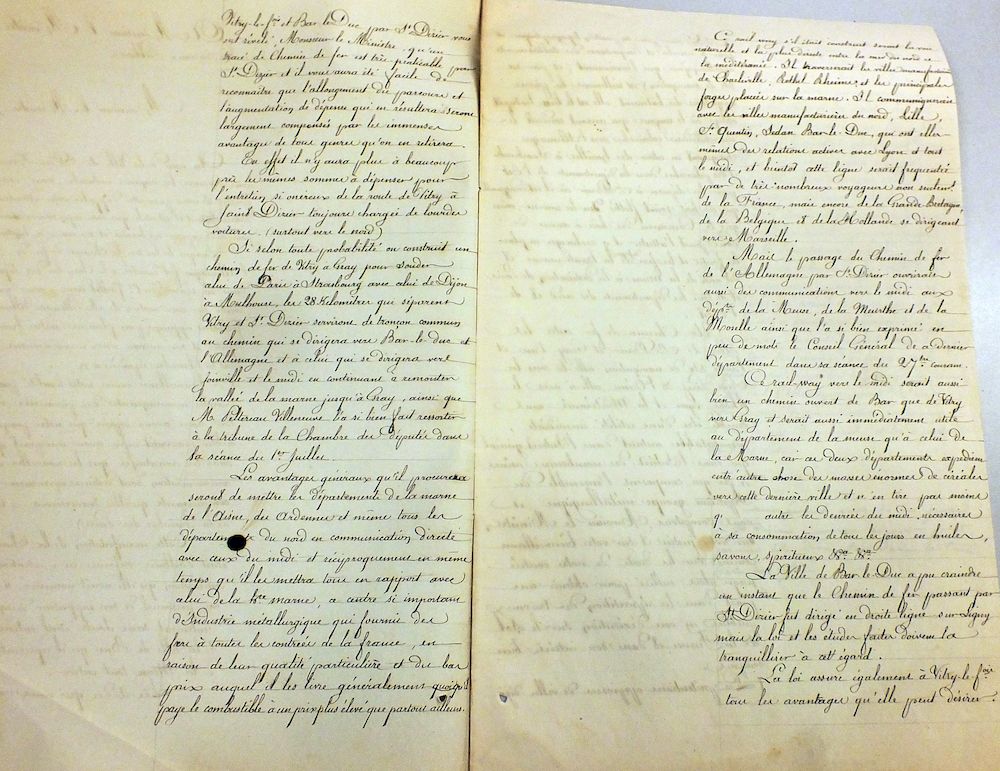 Vitry-le-f.ois et Bar-le-Duc par St. Dizier vous
ont révélé, Monsieur le Ministre, qu'un
tracé de Chemin de fer est très praticable par
St. Dizier et il vous aura été facile de
reconnaître que l'allongement du parcours et
l'augmentation de dépense qui en résultera seront
largement compensés par les immenses
avantages de tous genres qu'on en retirera.
En effet il n'y aura plus à beaucoup
près les mêmes sommes à dépenser pour
l'entretien si onéreux de la route de Vitry à
Saint Dizier toujours chargée de lourdes
voitures. (surtout vers le nord)
Si selon toute probabilité on construit un
chemin de fer de Vitry à Gray pour souder
celui de Paris à Strasbourg avec celui de Dijon
à Mulhouse, les 28 Kilomètres qui séparent
Vitry et St. Dizier serviront de tronçon commun
au chemin qui se dirigera vers Bar-le-duc et
l'Allemagne et à celui qui se dirigera vers
Joinville et le midi en continuant à remonter
la vallée de la marne jusqu'à Gray, ainsi que
M. Peltereau Villeneuve l'a si bien fait ressortir
à la tribune de la Chambre des députés dans
sa séance du 1er Juillet.
Les avantages généraux qu'il procurera
seront de mettre les départements de la marne
de l'aisne, des Ardennes et même tous les
départements du nord en communication directe
avec ceux du midi et réciproquement en même
temps qu'il les mettra tous en rapport avec
celui de la hte marne, ce centre si important
d'Industrie métallurgique qui fournit des
fers à toutes les contrées de la france, en
raison de leur qualité particulière et du bas
prix auquel il les livre généralement quoiqu'il
paye le combustible à un prix plus élevé que partout ailleurs.
Ce rail-way s'il était construit serait la voie
naturelle et la plus directe entre la mer du nord et
la méditéranée. Il traverserait les villes manufacturières
de Charleville, Rethel, Rheims, et les principales
forges placées sur la marne. Il communiquerait
avec les villes manufacturières du nord, Lille,
St. Quintin, Sedan Bar-le-Duc, qui ont elles
mêmes des relations actives avec Lyon et tout
le midi, et bientôt cette ligne serait fréquentée
par de très nombreux voyageurs non seulemt
de la France, mais encore de la Grande Bretagne,
de la Belgique et de la Hollande se dirigeant
vers Marseille.
Mais le passage du Chemin de fer
de l'Allemagne par St. Dizier ouvrirait
aussi des communications vers le midi aux
dépts. de la Meuse, de la Meurthe et de la
Moselle ainsi que l'a si bien exprimé en
peu de mots le Conseil Général de ce dernier
département dans sa séance du 27 courant.
Ce rail-way vers le midi serait aussi
bien un chemin ouvert de Bar que de Vitry
vers Gray et serait aussi immédiatement utile
au département de la meuse qu'à celui de
la Marne, car ces deux départements expédient
entr'autre chose des masses énormes de céréales
vers cette dernière ville et n'en tire pas moins
q' autre les denrées du midi nécessaires
à sa consommation de tous les jours en huiles,
savons, spiritueux &ca. &ca.
La Ville de Bar-le-Duc a pu craindre
un instant que le Chemin de fer passant par
St. Dizier fut dirigé en droite ligne sur Ligny
mais la loi et les études faites doivent la
tranquilliser à cet égard.
La loi assure également à Vitry-le-f.ois
tous les avantages qu'elle peut désirer.